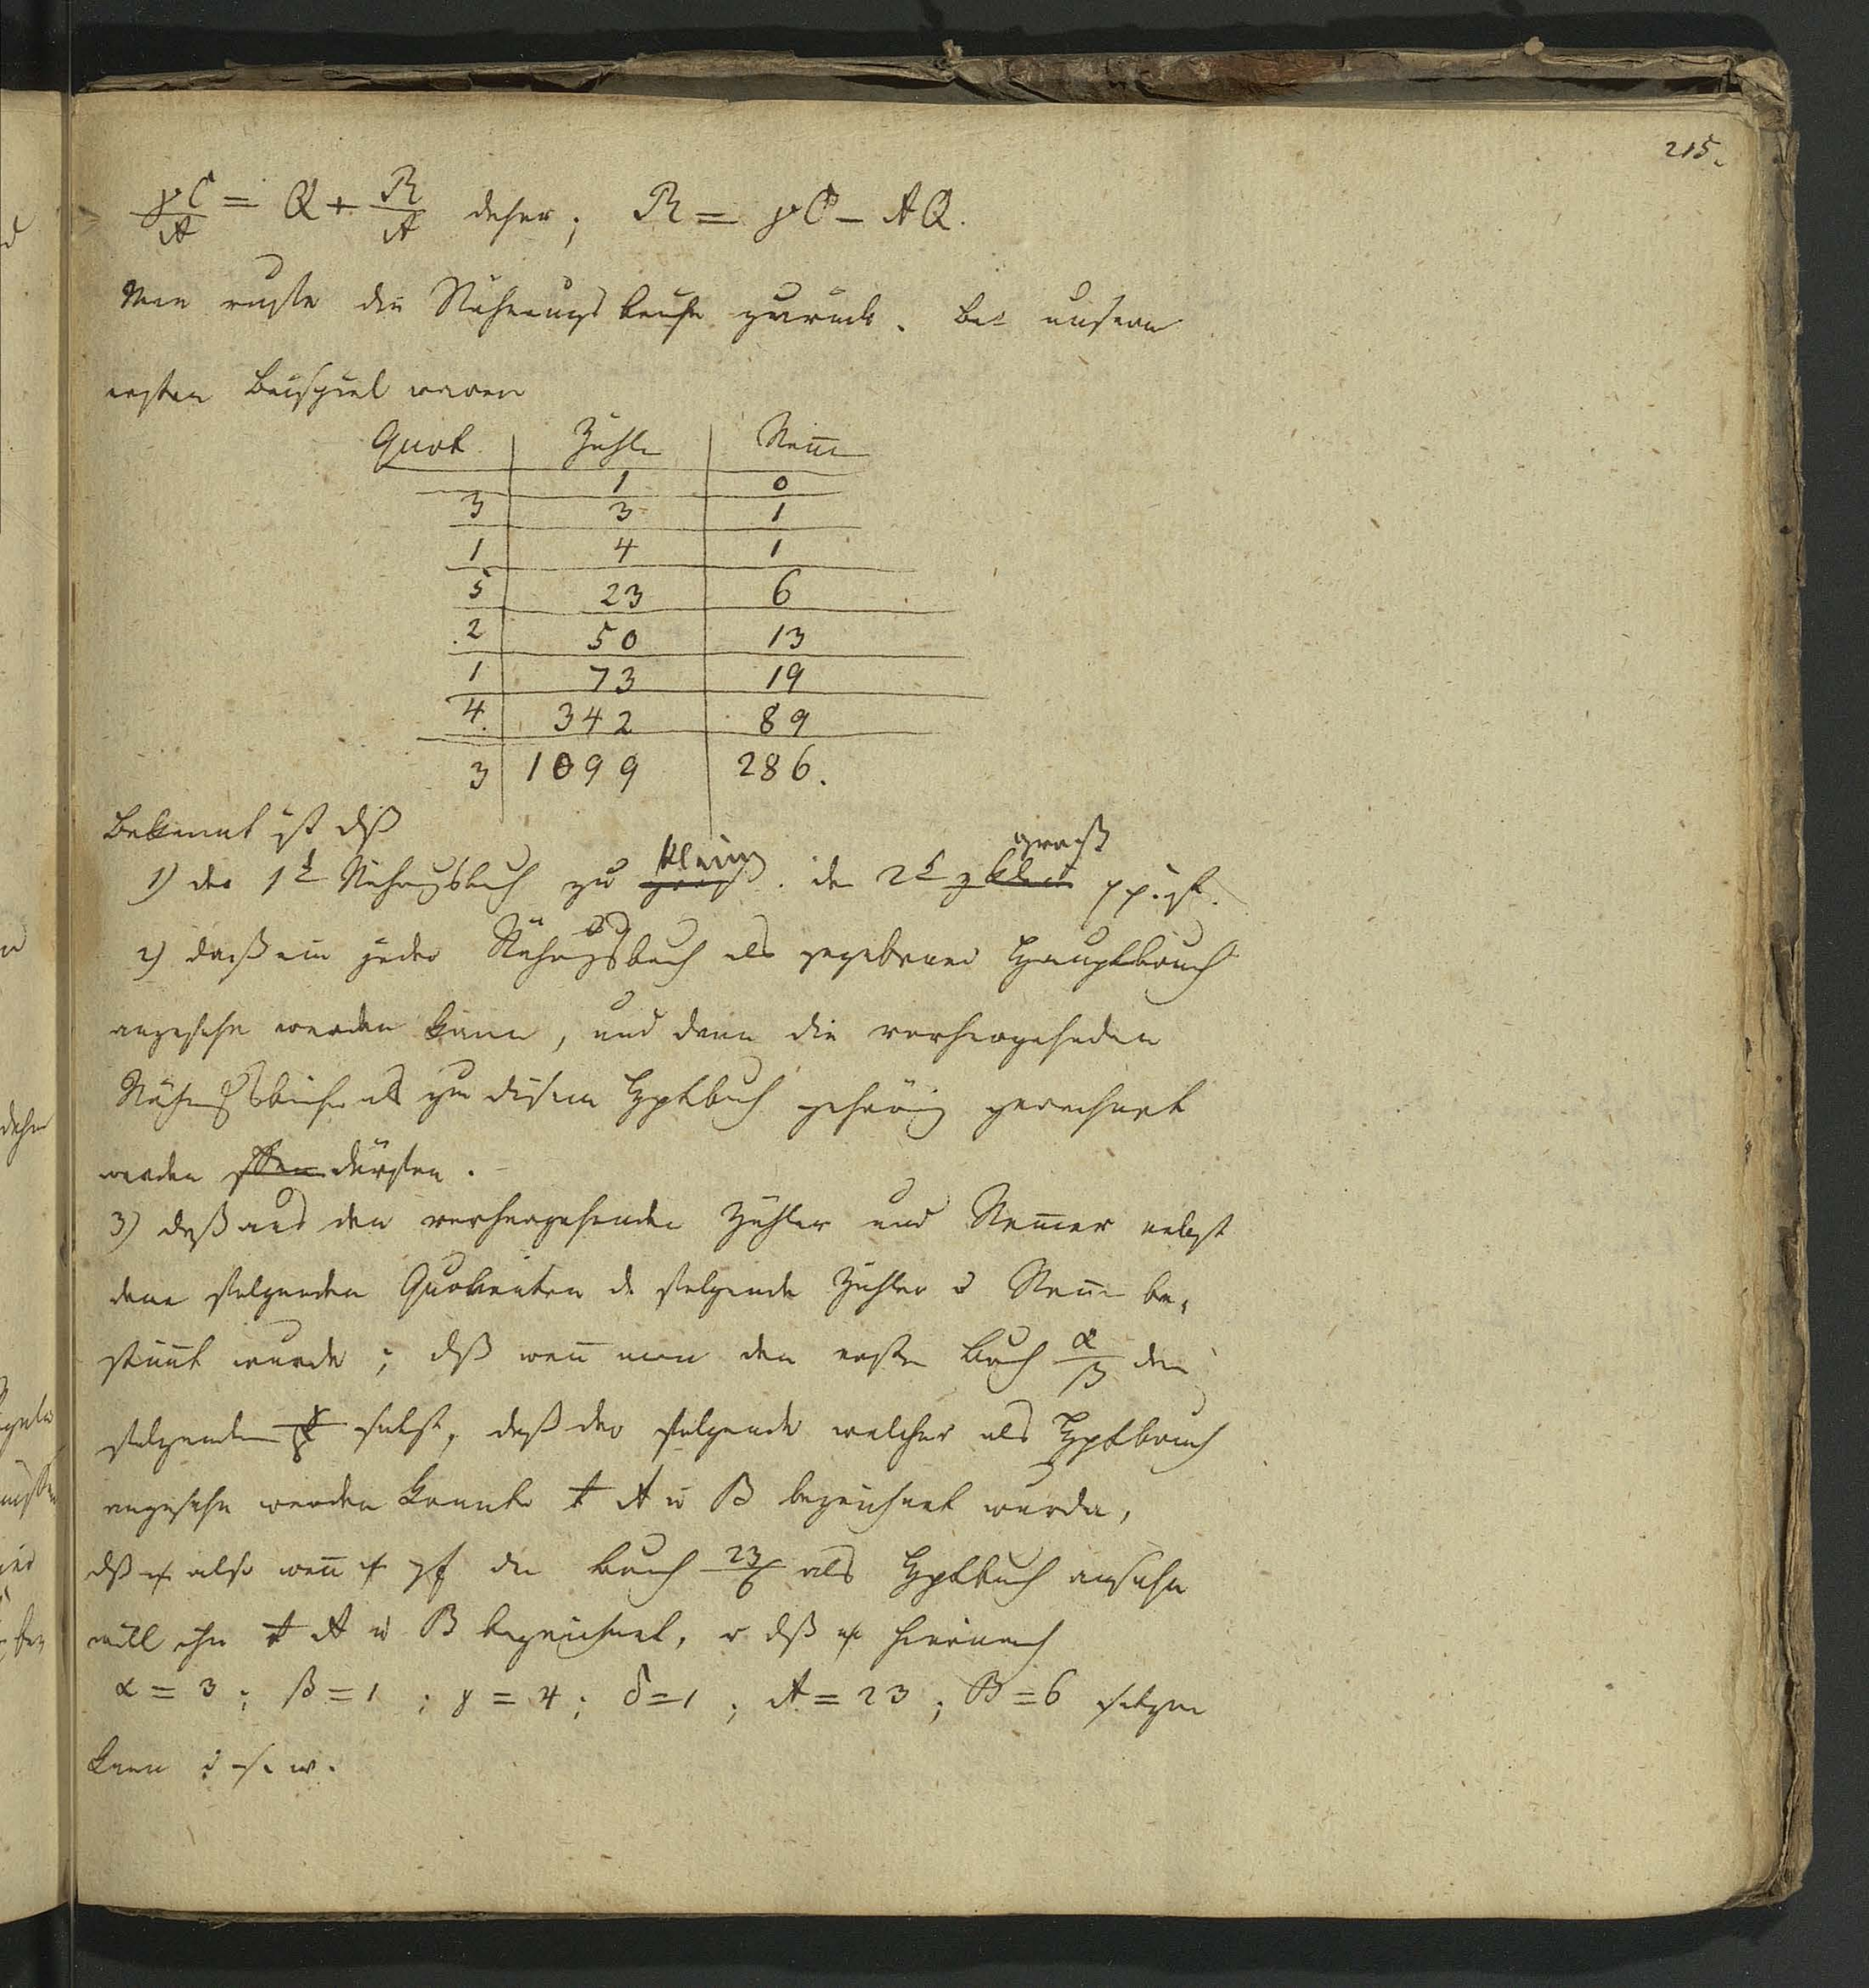 215.
γC/A = Q + R/A daher; R = γC – AQ.
Man rufe die Näherungsbrüche zurück. Bei unserm
ersten Beispiel waren
Quot. Zähler Nenn
1 0
3 3 1
1 4 1
5 23 6
2 50 13
1 73 19
4. 342 89
3 1099 286.
Bekannt ist dß
1) der 1t Näherungsbruch zu klein. der 2t z groß pp. ist.
2) daß ein jeder Näherungsbruch als gegebener Hauptbruch
angesehn werden kann, und dann die vorhergehenden
Näherungsbrüche als zu diesem Hptbruch gehörig gerechnet
werden dürften.
3) daß aus den vorhergehenden Zähler und Nenner nebst
dem folgenden Quotienten d folgende Zähler u Nenn be-
stimt wurde; dß wenn man den ersten Bruch α/β den
folgenden γ/δ sezt, daß der folgende welcher als Hptbruch
angesehn werden konnte A u B bezeichnet wurde,
dß also wenn den Bruch 23/6 als Hptbruch ansehn
will ihn A u B bezeichnet, dß hiernach
α = 3; β = 1; γ = 4; δ = 1; A = 23; B = 6 setzen
kann u. s. w.